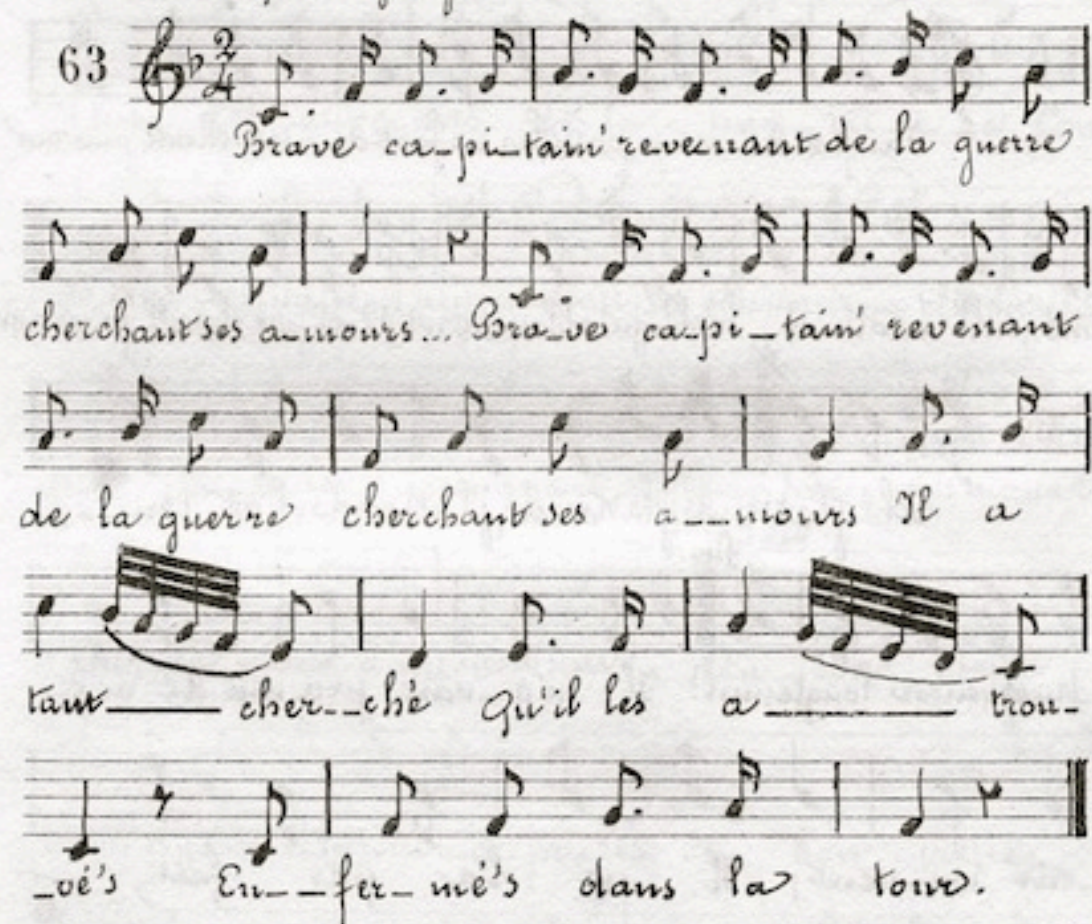 63
2
4
Brave ca_pi_tain' revenant de la guerre
cherchant ses a_mours... Bra_ve ca_pi_tain' revenant
de la guerre cherchant ses a__mours Il a
tant____ cher__ché Qu'il les a____ trou_
_vé's En__fer_mé's dans la tour.